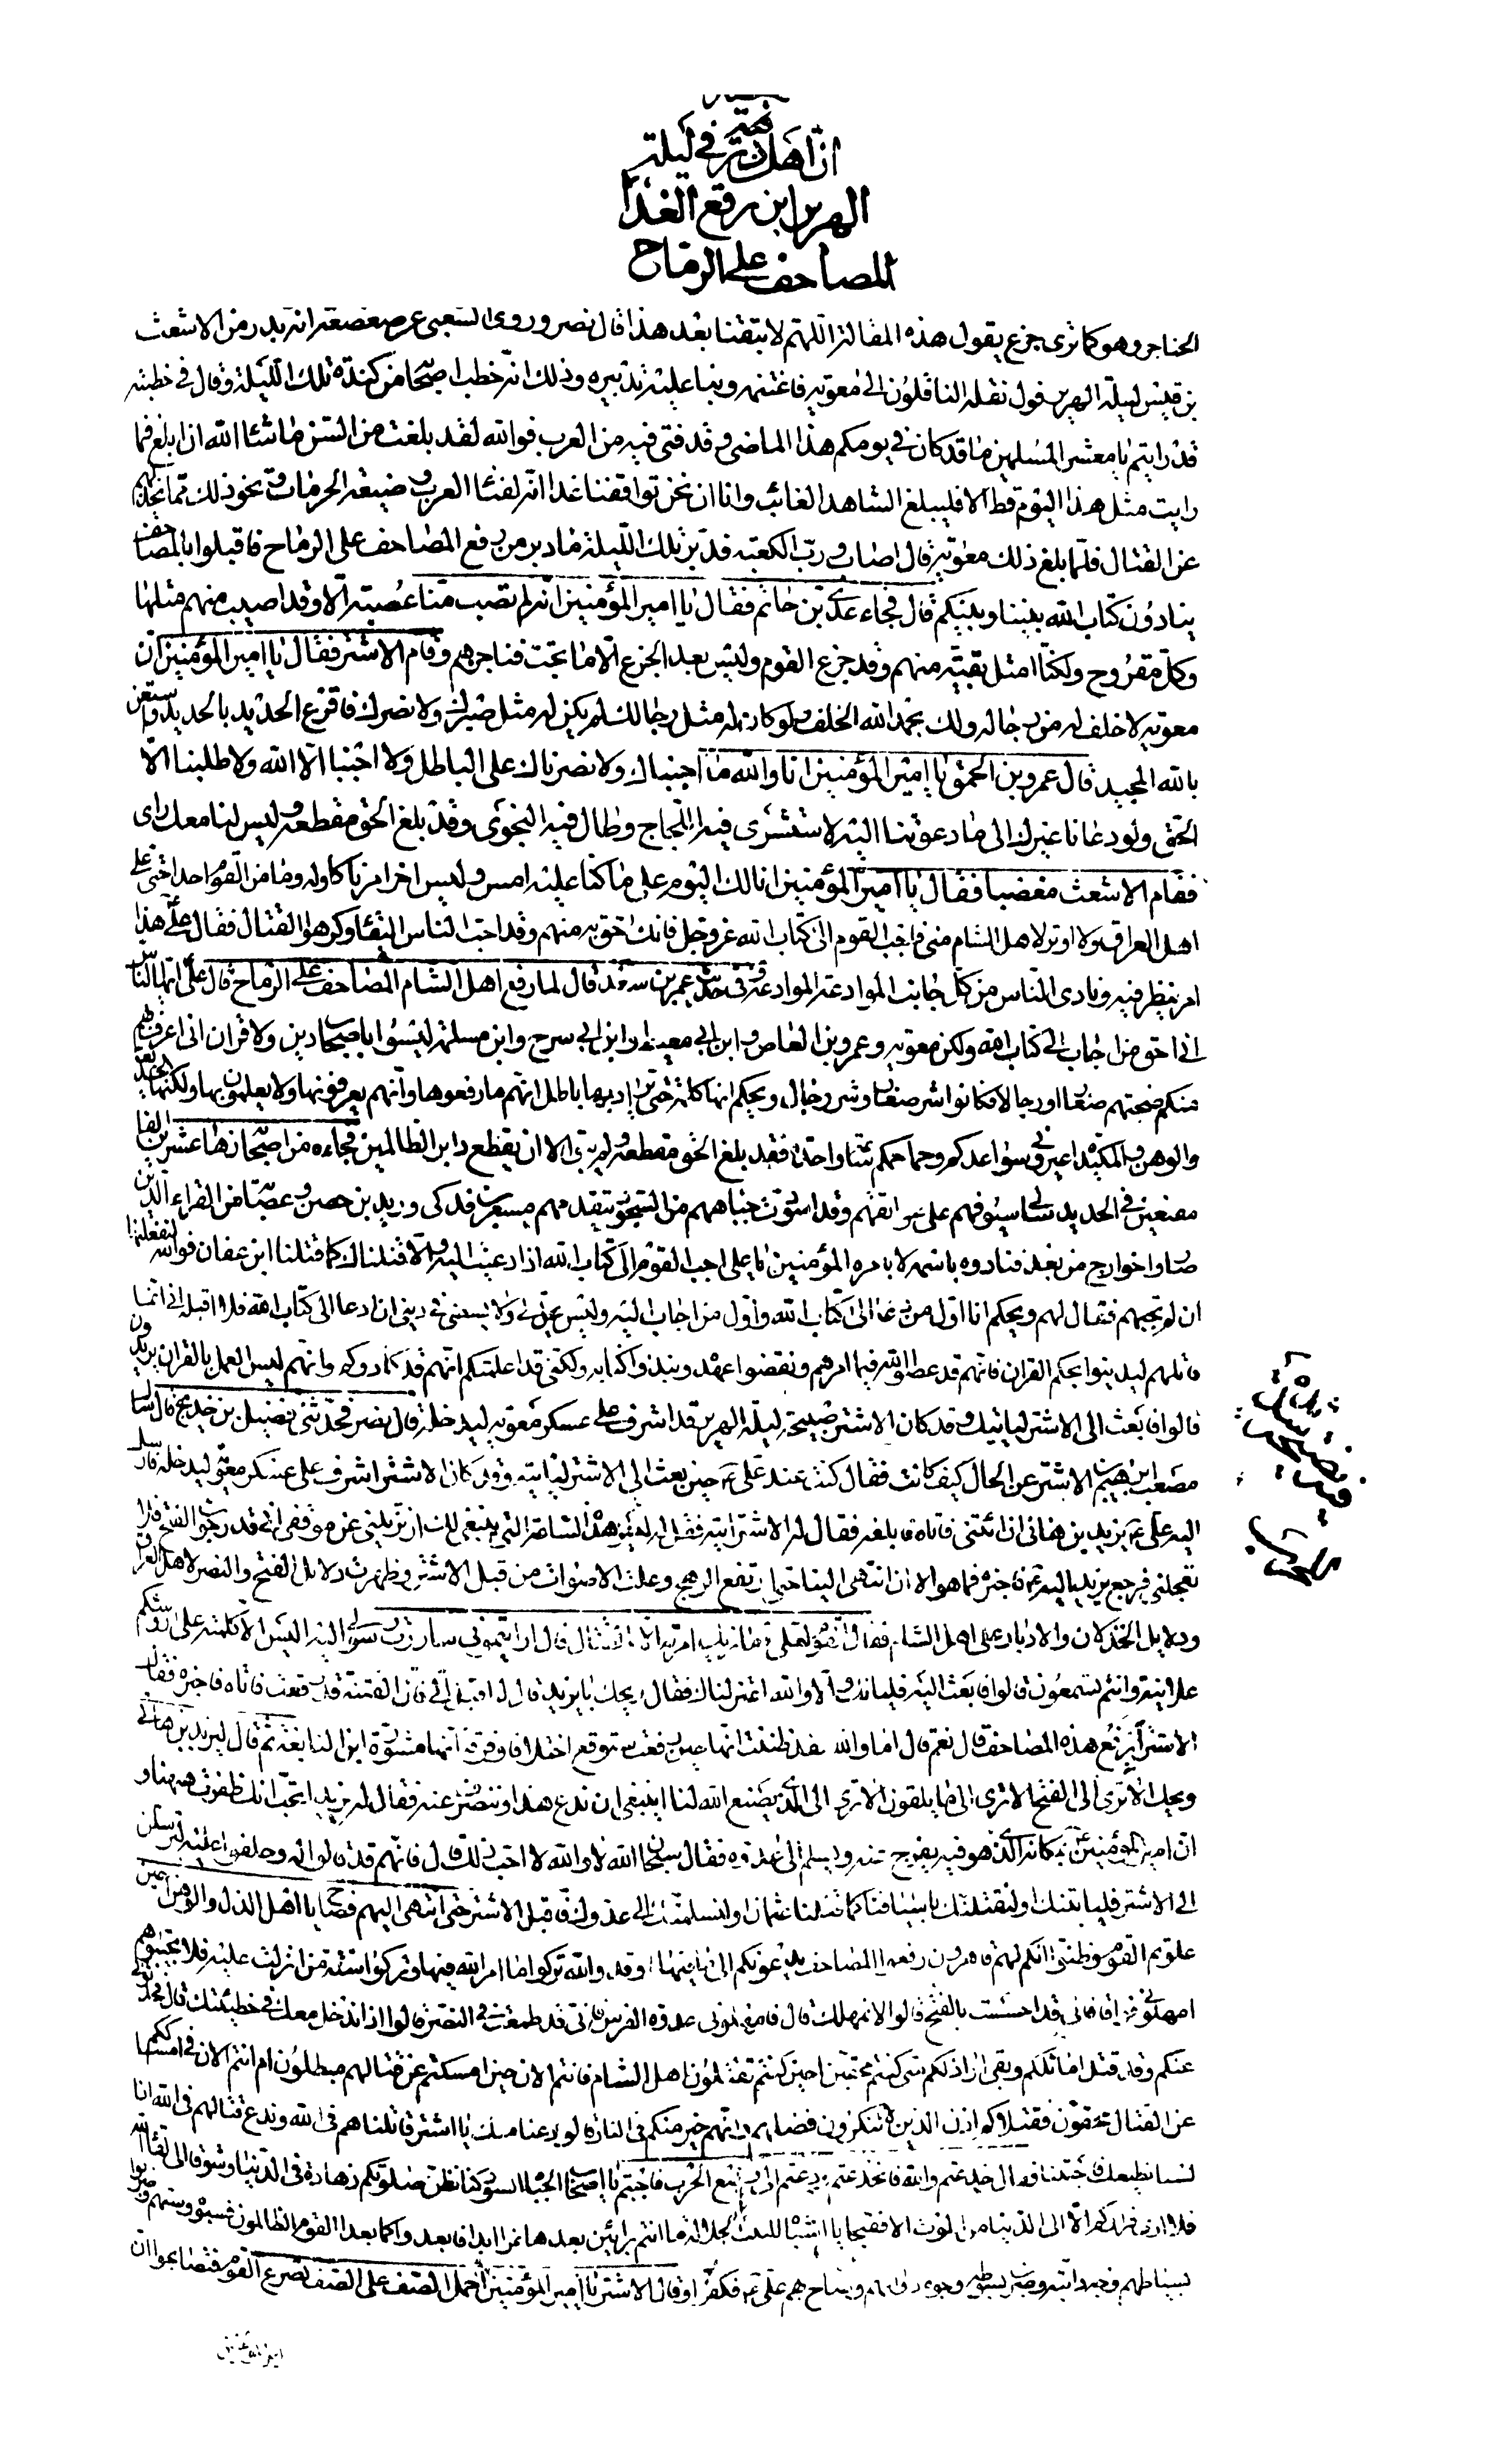 ان اهل في ليلة
الهرير ابن رفع الغد
المصاحف على الرماح
الحناجر وهو كما ترى جزع يقول هذه المقالة اللهم لا تبقنا بعد هذا قال نصر وروى الشعبي عن صعصعة انه بدر من الاشعث
بن قيس ليلة الهرير قول نقله الناقلون الى معوية فاغتنمه وبنا عليه تدبيره وذلك انه خطب اصحابه من كندة تلك الليلة وقال في خطبته
قد رايتم يا معشر المسلمين ما قد كان في يومكم هذا الماضي وقد فنى فيه من العرب فوالله لقد بلغت من السن ما شاء الله ان ابلغ فما
رايت مثل هذا اليوم قط الا فليبلغ الشاهد الغائب وانا ان نحن تواقفنا غدا انه لفناء العرب وضيعة الحرمات ونحو ذلك مما يخذلهم
عن القتال فلما بلغ ذلك معوية قال اصاب ورب الكعبة فدبر تلك الليلة ما دبر من رفع المصاحف على الرماح فاقبلوا بالمصاحف
ينادون كتاب الله بيننا وبينكم قال فجاء عدي بن حاتم فقال يا امير المؤمنين انه لم تصب منا عصبة الا وقد اصيب منهم مثلها
وكل مقروح ولكنا امثل بقية منهم وقد جزع القوم وليس بعد الجزع الا ما تحب فناجزهم وقام الاشتر فقال يا امير المؤمنين ان
معوية لا خلف له من رجاله ولك بحمد الله الخلف ولو كان له مثل رجالك لم يكن له مثل صبرك ولا نصرك فاقرع الحديد بالحديد واستعن
بالله المجيد قال عمرو بن الحمق يا امير المؤمنين انا والله ما اجبناك ولا نصرناك على الباطل ولا اجبنا الا الله ولا طلبنا الا
الحق ولو دعانا غيرك الى ما دعوتنا اليه لاستشرى فيه اللجاج وطال فيه النجوى وقد بلغ الحق مقطعه وليس لنا معك راى
فقام الاشعث مغضبا فقال يا امير المؤمنين انا لك اليوم على ما كنا عليه امس وليس اخر امرنا كاوله وما من القوم احد احنى على
اهل العراق ولا اوتر لاهل الشام مني فاجب القوم الى كتاب الله عز وجل فانك احق به منهم وقد احب الناس البقاء وكرهوا القتال فقال علي هذا
امر ينظر فيه ونادى الناس من كل جانب الموادعة الموادعة وفي حديث عمر بن سعد قال لما رفع اهل الشام المصاحف على الرماح قال علي ايها الناس
اني احق من اجاب الى كتاب الله ولكن معوية وعمرو بن العاص وابن ابي معيط وابن ابي سرح وابن مسلمة ليسوا باصحاب دين ولا قران اني اعرف بهم
منكم صحبتهم صغارا ورجالا فكانوا شر صغار وشر رجال ويحكم انها كلمة حق يراد بها باطل انهم ما رفعوها وانهم يعرفونها ولا يعملون بها ولكنها الخديعة
والوهن والمكيدة اعيروني سواعدكم وجماجمكم ساعة واحدة فقد بلغ الحق مقطعه ولم يبق الا ان يقطع دابر الظالمين فجاءه من اصحابه زهاء عشرين الفا
مقنعين في الحديد شاكي سيوفهم على عواتقهم وقد اسودت جباههم من السجود يتقدمهم مسعر بن فدكي وزيد بن حصين وعصابة من القراء الذين
صاروا خوارج من بعد فنادوه باسمه لا بامرة المؤمنين يا علي اجب القوم الى كتاب الله اذا دعيت اليه والا قتلناك كما قتلنا ابن عفان فوالله لنفعلنها
ان لم تجبهم فقال لهم ويحكم انا اول من دعا الى كتاب الله واول من اجاب اليه وليس يحل لي ولا يسعني في ديني ان ادعا الى كتاب الله فلا اقبله اني انما
قاتلهم ليدينوا بحكم القران فانهم قد عصوا الله فيما امرهم ونقضوا عهده ونبذوا كتابه ولكني قد اعلمتكم انهم قد كادوكم وانهم ليس العمل بالقران يريدون
قالوا فابعث الى الاشتر لياتيك وقد كان الاشتر صبيحة ليلة الهرير قد اشرف على عسكر معوية ليدخله قال نصر فحدثني فضيل بن خديج قال سال
مصعب ابراهيم الاشتر عن الحال كيف كانت فقال كنت عند علي ع حين بعث الى الاشتر لياتيه وقد كان الاشتر اشرف على عسكر معوية ليدخله فارسل
اليه علي ع يزيد بن هاني ان ائتني فاتاه فابلغه فقال له الاشتر ايته فقل له ليس هذه الساعة التي ينبغي لك ان تزيلني عن موقفي اني قد رجوت الفتح فلا
تعجلني فرجع يزيد اليه ع فاخبره فما هو الا ان انتهى الينا حتى ارتفع الرهج وعلت الاصوات من قبل الاشتر وظهرت دلايل الفتح والنصر لاهل العراق
ودلايل الخذلان والادبار على اهل الشام فقال القوم لعلي ع ما نريك امرته الا القتال قال ارايتموني ساررت رسولي اليه اليس الا كلمته على رؤسكم
علانية وانتم تسمعون قالوا فابعث اليه فلياتك والا والله اعتزلناك فقال ويحك يا يزيد قل له اقبل الي فان الفتنة قد وقعت فاتاه فاخبره فقال
الاشتر ابرفع هذه المصاحف قال نعم قال اما والله لقد ظننت انها حين رفعت ستوقع اختلافا وفرقة انها مشورة ابن النابغة ثم قال ليزيد بن هاني
ويحك الا ترى الى الفتح الا ترى الى ما يلقون الا ترى الى الذي يصنع الله لنا اينبغي ان ندع هذا وننصرف عنه فقال له يزيد اتحب انك ظفرت ههنا و
ان امير المؤمنين ع بمكانه الذي هو فيه يفرج عنه ويسلم الى عدوه فقال سبحان الله لا والله لا احب ذلك قال فانهم قد قالوا له وحلفوا عليه لترسلن
الى الاشتر فلياتينك او لنقتلنك باسيافنا كما قتلنا عثمان او لنسلمنك الى عدوك فاقبل الاشتر حتى انتهى اليهم فصاح يا اهل الذل والوهن احين
علوتم القوم وظنوا انكم لهم قاهرون رفعوا المصاحف يدعونكم الى ما فيها وقد والله تركوا ما امر الله فيها وتركوا سنة من انزلت عليه فلا تجيبوهم
امهلوني فواقا فاني قد احسست بالفتح قالوا لا نمهلك قال فامهلوني عدوة الفرس فاني قد طمعت في النصر قالوا اذا ندخل معك في خطيئتك قال فحدثوني
عنكم وقد قتل اماثلكم وبقي اراذلكم متى كنتم محقين احين كنتم تقتلون اهل الشام فانتم الان حين امسكتم عن قتالهم مبطلون ام انتم الان في امساككم
عن القتال محقون فقتلاكم اذن الذين لا تنكرون فضلهم وانهم خير منكم في النار قالوا دعنا منك يا اشتر قاتلناهم في الله وندع قتالهم في الله انا
لسنا نطيعك فاجتنبنا قال خدعتم والله فانخدعتم ودعيتم الى وضع الحرب فاجبتم يا اصحاب الجباه السود كنا نظن صلوتكم زهادة في الدنيا وشوقا الى لقاء الله
فلا ارى فراركم الا الى الدنيا من الموت الا فقبحا يا اشباه النيب الجلالة ما انتم برائين بعدها عزا ابدا فابعدوا كما بعد القوم الظالمون فسبوه وسبهم وضربوا
بسياطهم وجه دابته وضرب بسوطه وجوه دوابهم وصاح بهم علي ع فكفوا وقال الاشتر يا امير المؤمنين احمل الصف على الصف تصرع القوم فتصايحوا ان